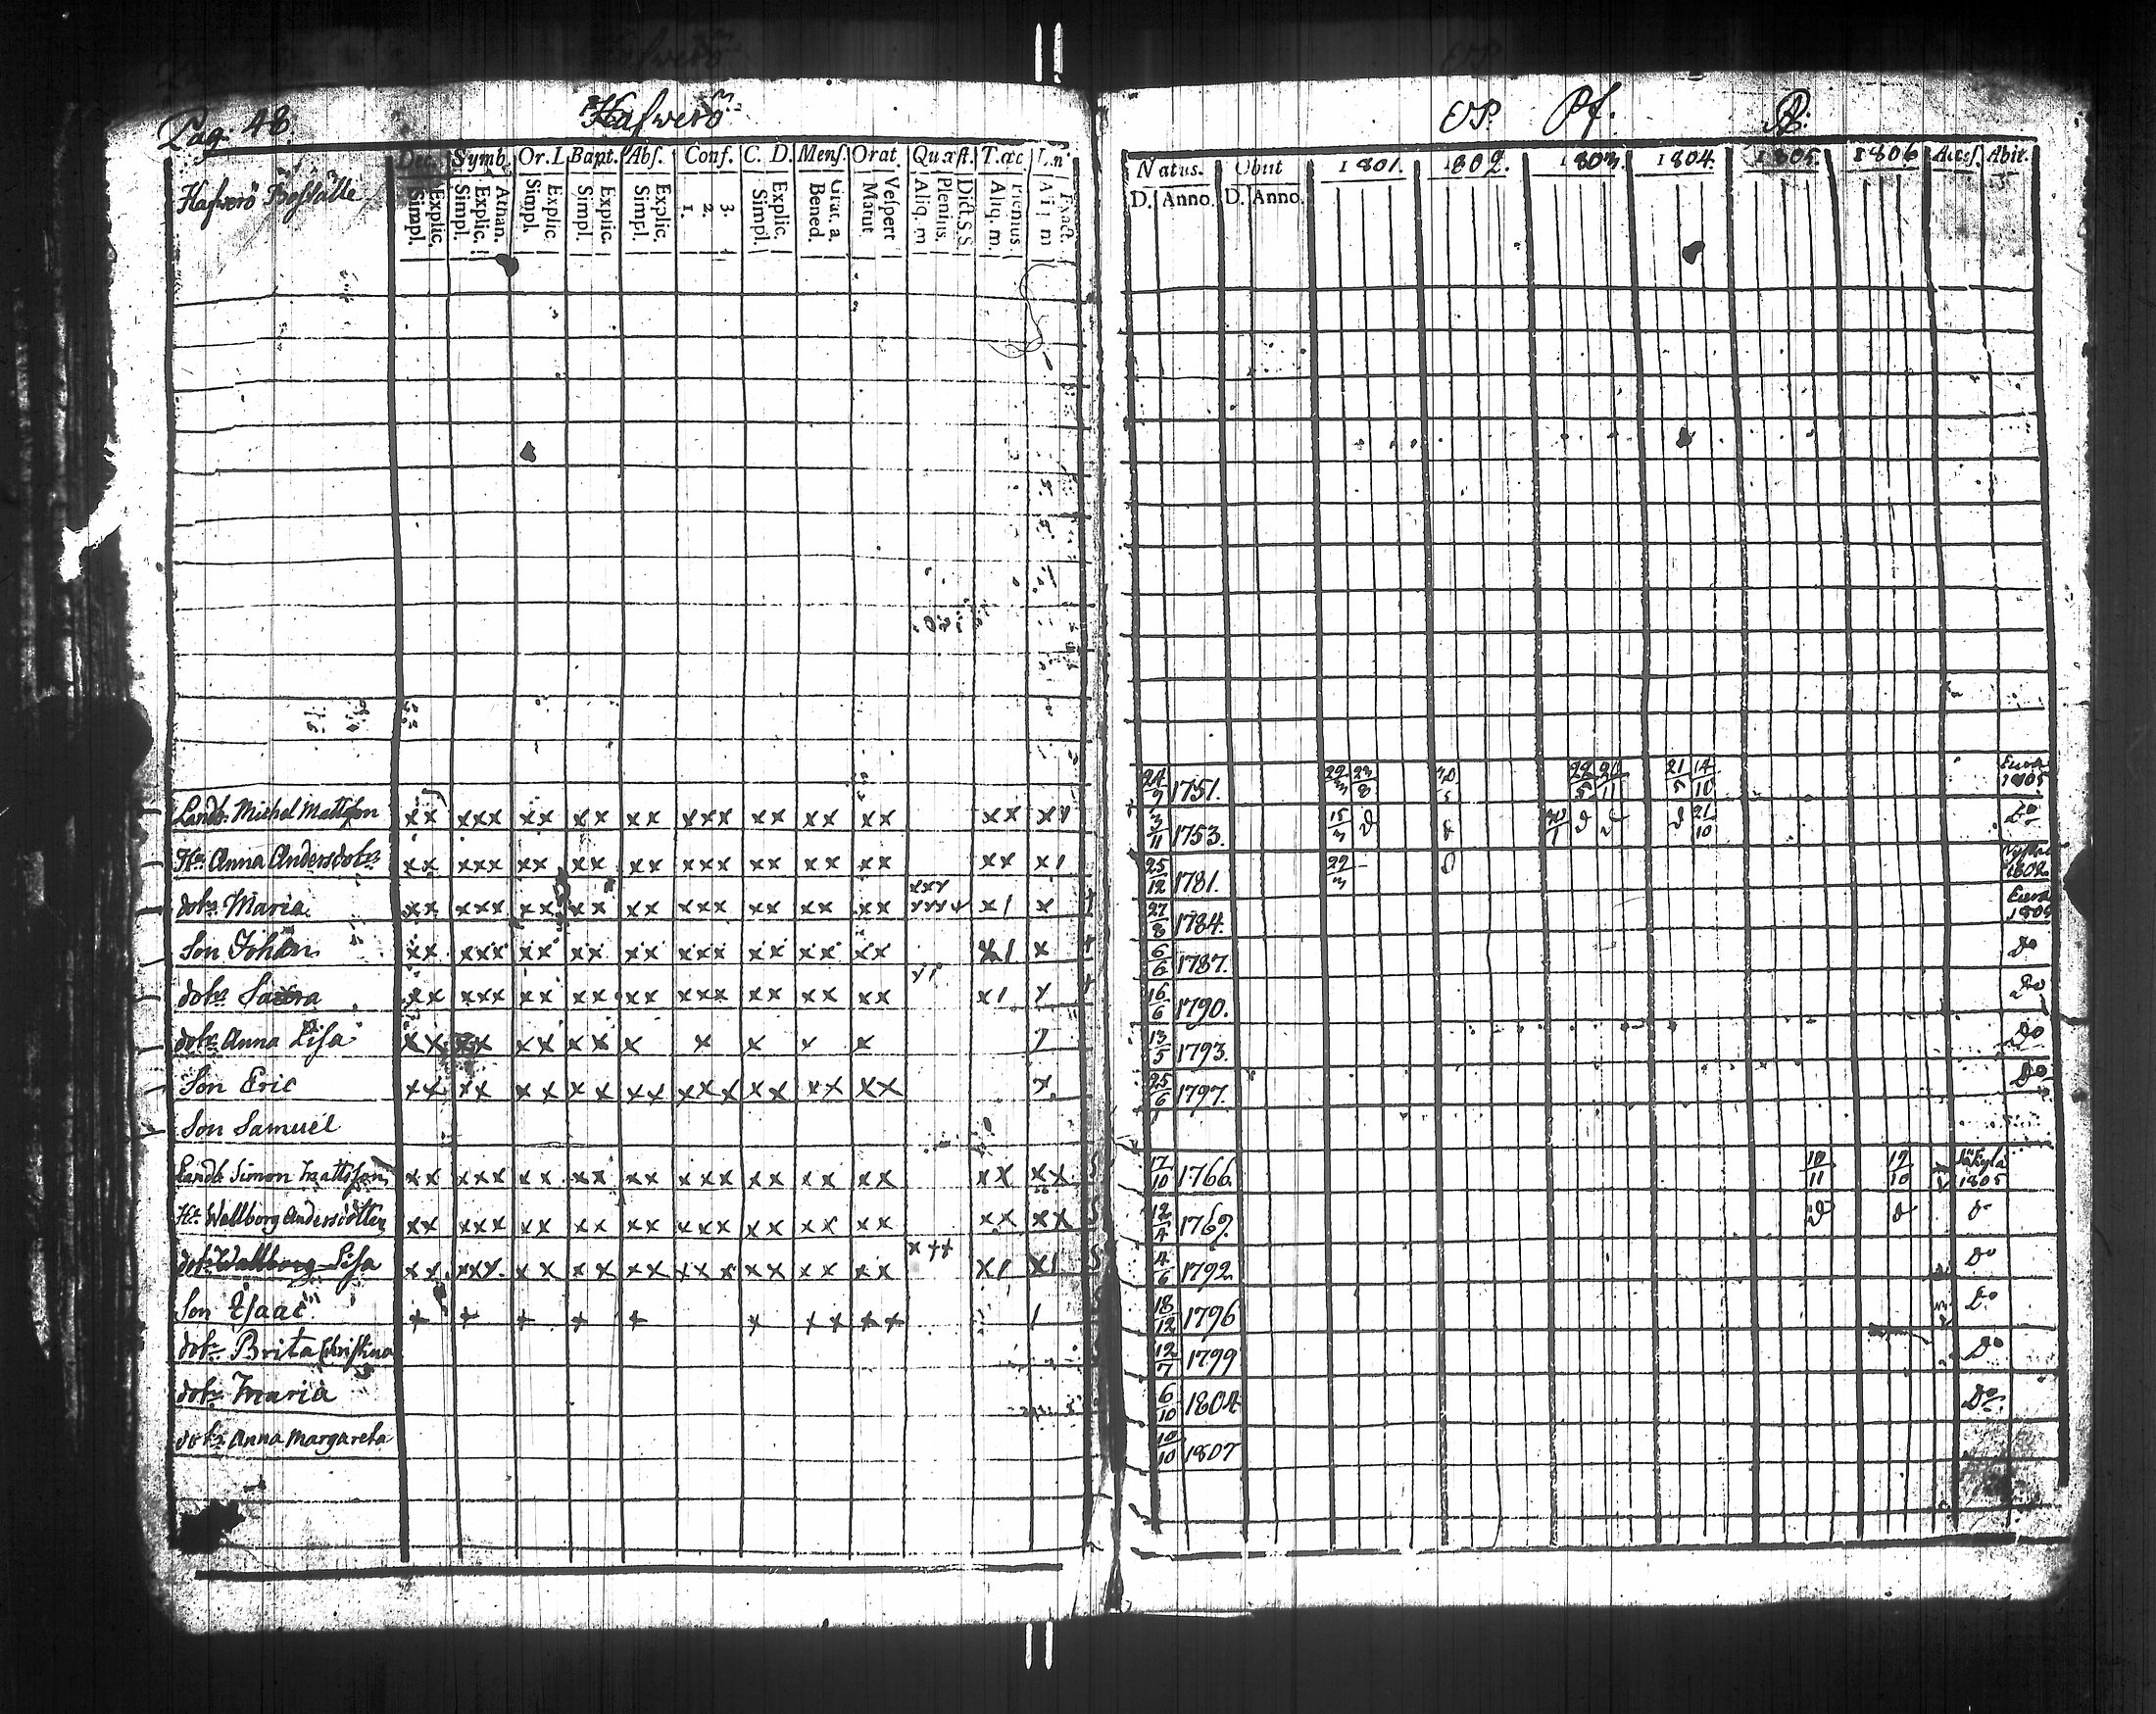 Pag. 48.
Hafwerö
Hafwerö Boställe
Dec. Symb. Or. I. Bapt. Abs. Conf. C. D. Mens. Orat. Quæst. T.æc. L.n.
Simpl. Explic. Simpl. Explic. Athan. Simpl. Explic. Simpl. Explic. Simpl. Explic. 1. 2. 3. Simpl. Explic. Bened. Grat. a. Matut. Vespert. Aliq. m. Plenius. Dict. S.S. Aliq. m. Plenius. Exact.
Landb. Michel Mattsson xx xxx xx xx xx xxx xx xx xx xx
Hu Anna Andersdotr xx xxx xx xx xx xxx xx xx xx xx x1
dotr Maria xx xxx xx xx xx xxx xx xx xx x1 x
Son Johan xx xxx xx xx xx xxx xx xx xx x1 x
dotr xx xxx xx xx xx xxx xx xx xx x1
dotr Anna Lisa xx xx xx xx x x x x x
Son Eric xx xx xx xx xx xxx xx xx xx x
Son Samuel
Landb. Simon Mattsson xx xxx xx xx xx xxx xx xx xx xx xx
Hu Wallborg Andersdotter xx xxx xx xx xx xxx xx xx xx xx xx
dotr Wallborg Lisa xx xxx xx xx xx xxx xx xx xx x1 x1
Son Isaac + + + + + x ++ ++ 1
dotr Brita Christina
dotr Maria
dotr Anna Margareta
Natus. Obiit 1801. 1802. 1803. 1804. 1805. 1806 Access. Abit.
D. Anno. D. Anno.
24/9 1751. 23/8 21/5 14/10 Eura 1805
3/11 1753. 15/3 21/10 Do
25/12 1781. 29/3 1802
27/8 1784. Eura
6/6 1787. Do
16/6 1790. Do
13/5 1793. Do
25/6 1797. Do
17/10 1766. 10/11 19/10 Säkylä 1805
12/4 1769.
4/6 1792 Do
18/12 1796 Do
12/7 1799 Do
6/10 1804 Do
10/10 1807